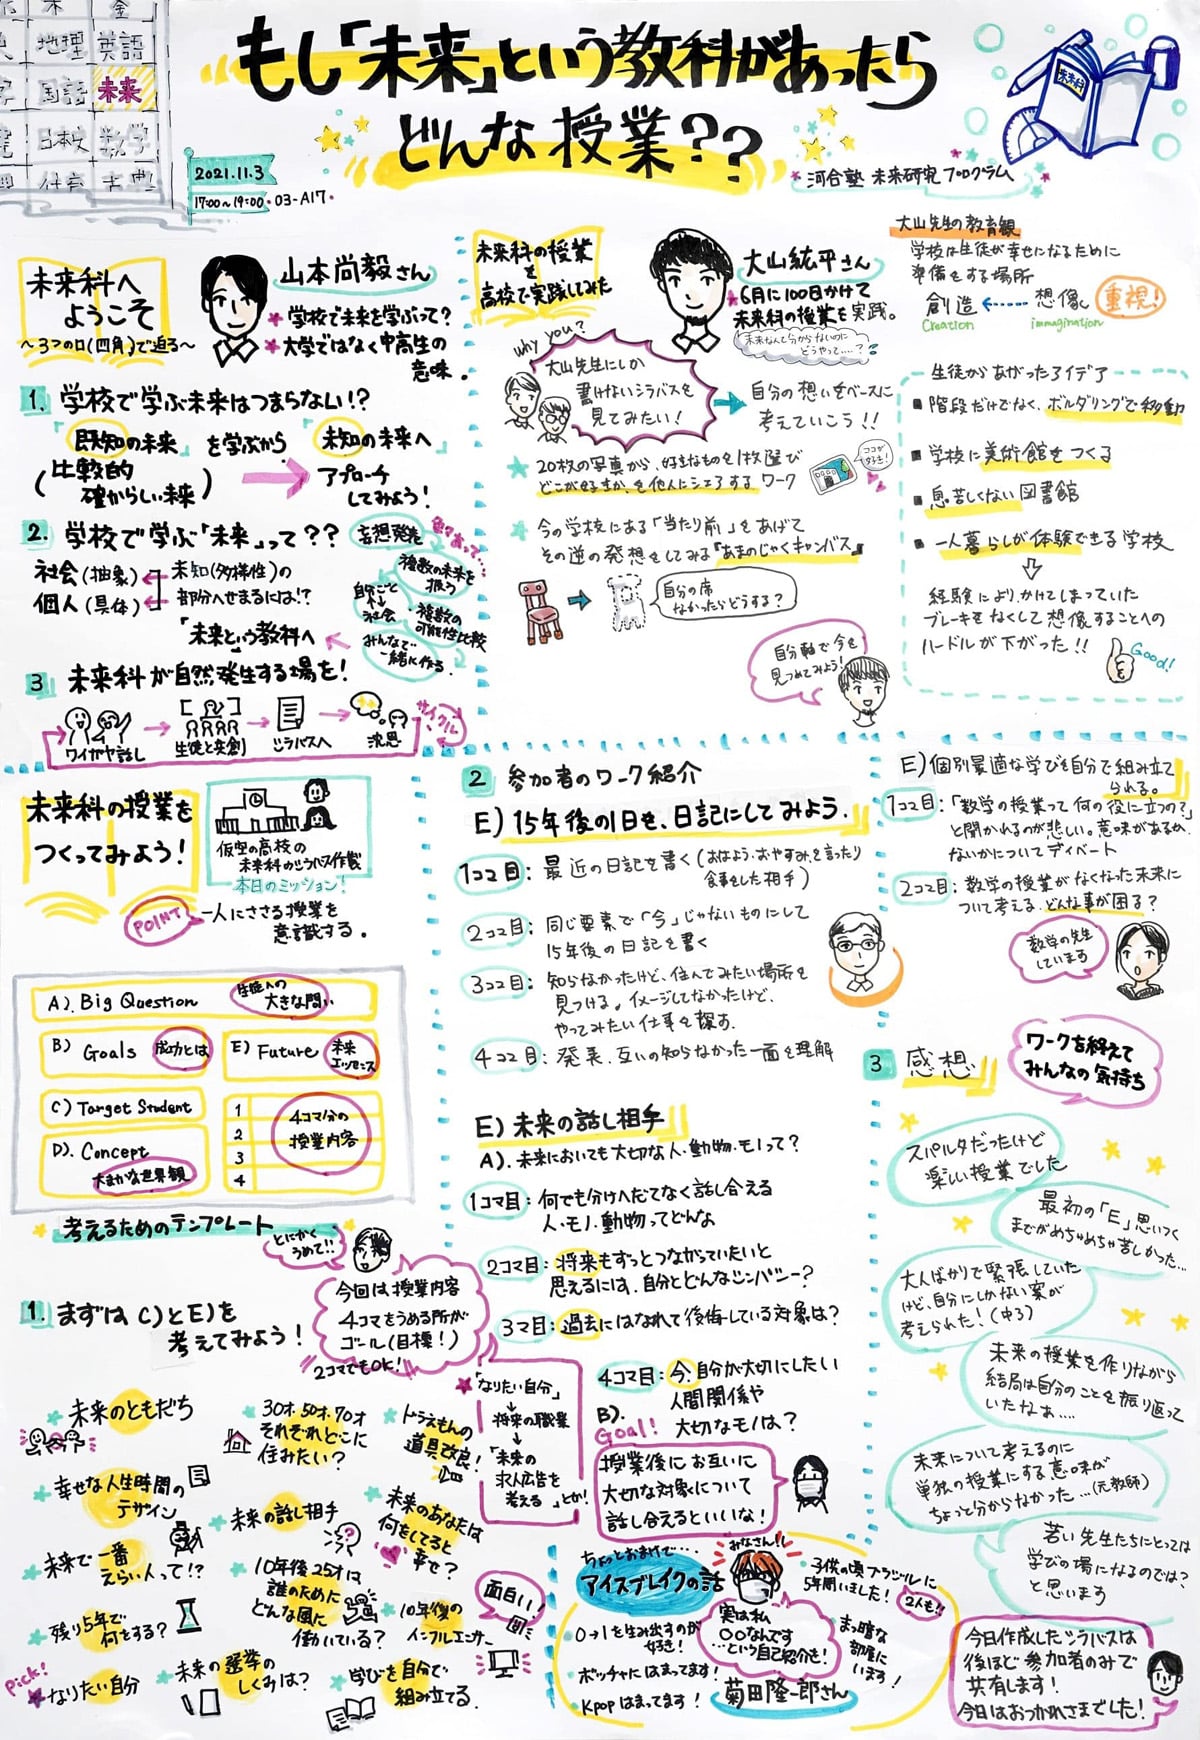 木
金
地理
英語
国語
未来
日本史
数学
体育
古典
もし「未来」という教科があったら
どんな授業??
2021.11.3
17:00〜19:00・03-A17・
河合塾 未来研究プログラム
未来科
未来科へ
ようこそ
〜3つの口(四角)で迫る〜
山本尚毅さん
★学校で未来を学ぶって?
★大学ではなく中高生の
意味。
1. 学校で学ぶ未来はつまらない!?
「既知の未来」を学ぶから
(比較的
確からしい未来)
「未知の未来へ」
アプローチ
してみよう!
2. 学校で学ぶ「未来」って??
社会(抽象)
個人(具体)
未知(多様性)の
部分へせまるには!?
「未来という教科へ
妄想発表
色々あって…
複数の未来を
扱う
自分ごと
↑↓
社会
複数の
可能性比較
みんなで
一緒に作る
3 未来科が自然発生する場を!
ワイガヤ話し
生徒と共創
シラバスへ
沈思
サイクル
未来科の授業
を
高校で実践してみた
大山紘平さん
★6月に100日かけて
未来科の授業を実践。
未来なんて分からないのに
どうやって…?
why you?
大山先生にしか
書けないシラバスを
見てみたい!
自分の想いをベースに
考えていこう!!
★20枚の写真から、好きなものを1枚選び
どこが好きか、を他人にシェアするワーク
ココが
好き!
★今の学校にある「当たり前」をあげて
その逆の発想をしてみる『あまのじゃくキャンバス』
自分の席
なかったらどうする?
自分軸で今を
見つめてみよう!
大山先生の教育観
学校は生徒が幸せになるために
準備をする場所
創造
想像
重視!
Creation
immagination
生徒からあがったアイデア
■階段だけでなく、ボルダリングで移動
■学校に美術館をつくる
■息苦しくない図書館
■一人暮らしが体験できる学校
経験により、かけてしまっていた
ブレーキをなくして想像することへの
ハードルが下がった!!
Good!
未来科の授業を
つくってみよう!
仮空の高校の
未来科のシラバス作製
本日のミッション!
POINT
一人にささる授業を
意識する。
A). Big Question
生徒への
大きな問い
B) Goals
成功とは
E) Future
未来
エッセンス
C) Target Student
D). Concept
大まかな世界観
1
2
3
4
4コマ分の
授業内容
★考えるためのテンプレート
とにかく
うめて!!
今回は授業内容
4コマをうめる所が
ゴール(目標!)
2コマでもOK!
1. まずはC)とE)を
考えてみよう!
★未来のともだち
★幸せな人生時間の
デザイン
★未来で一番
えらい人って!?
★残り5年で
何をする?
Pick!
★なりたい自分
★30才、50才、70才
それぞれどこに
住みたい?
★未来の話し相手
★10年後25才は
誰のために
どんな風に
働いている?
★未来の選挙の
しくみは?
★ドラえもんの
道具改良!
★未来のあなたは
何をしてると
幸せ?
★10年後の
インフルエンサー
面白い!
★学びを自分で
組み立てる.
★「なりたい自分」
↓
将来の職業
↓
「未来の
求人広告を
考える」とか!
2 参加者のワーク紹介
E) 15年後の1日を、日記にしてみよう.
1コマ目:最近の日記を書く(おはよう・おやすみを言ったり
食事をした相手)
2コマ目:同じ要素で「今」じゃないものにして
15年後の日記を書く
3コマ目:知らなかったけど、住んでみたい場所を
見つける。イメージしてなかったけど、
やってみたい仕事を探す.
4コマ目:発表.互いの知らなかった一面を理解
E) 未来の話し相手
A). 未来においても大切な人・動物・モノって?
1コマ目:何でも分けへだてなく話し合える
人・モノ・動物ってどんな
2コマ目:将来もずっとつながっていたいと
思えるには、自分とどんなシンパシー?
3マ目:過去にはなれて後悔している対象は?
4コマ目:今、自分が大切にしたい
人間関係や
大切なモノは?
B).
Goal!
授業後にお互いに
大切な対象について
話し合えるといいな!
E) 個別最適な学びを自分で組み立て
られる。
1コマ目:「数学の授業って何の役に立つの?」
と聞かれるのが悲しい。意味があるか、
ないかについてディベート
2コマ目:数学の授業がなくなった未来に
ついて考える.どんな事が困る?
数学の先生
しています
3 感想
ワークを終えて
みんなの気持ち
スパルタだったけど
楽しい授業でした
最初の「E」思いつく
までがめちゃめちゃ苦しかった…
大人ばかりで緊張していた
けど、自分にしかない案が
考えられた!(中3)
未来の授業を作りながら
結局は自分のことを振り返って
いたなぁ….
未来について考えるのに
単独の授業にする意味が
ちょっと分からなかった…(元教師)
若い先生たちにとっては
学びの場になるのでは?
と思います
今日作成したシラバスは
後ほど参加者のみで
共有します!
今日はおつかれさまでした!
ちょっとおまけで…
アイスブレイクの話
みなさん!!
実は私
〇〇なんです
…という自己紹介を!
菊田隆一郎さん
・0→1を生み出すのが
好き!
・ボッチャにはまってます!
・Kpopはまってます!
・子供の頃ブラジルに
5年間いました!
2人も!!
・まっ暗な
部屋に
います!